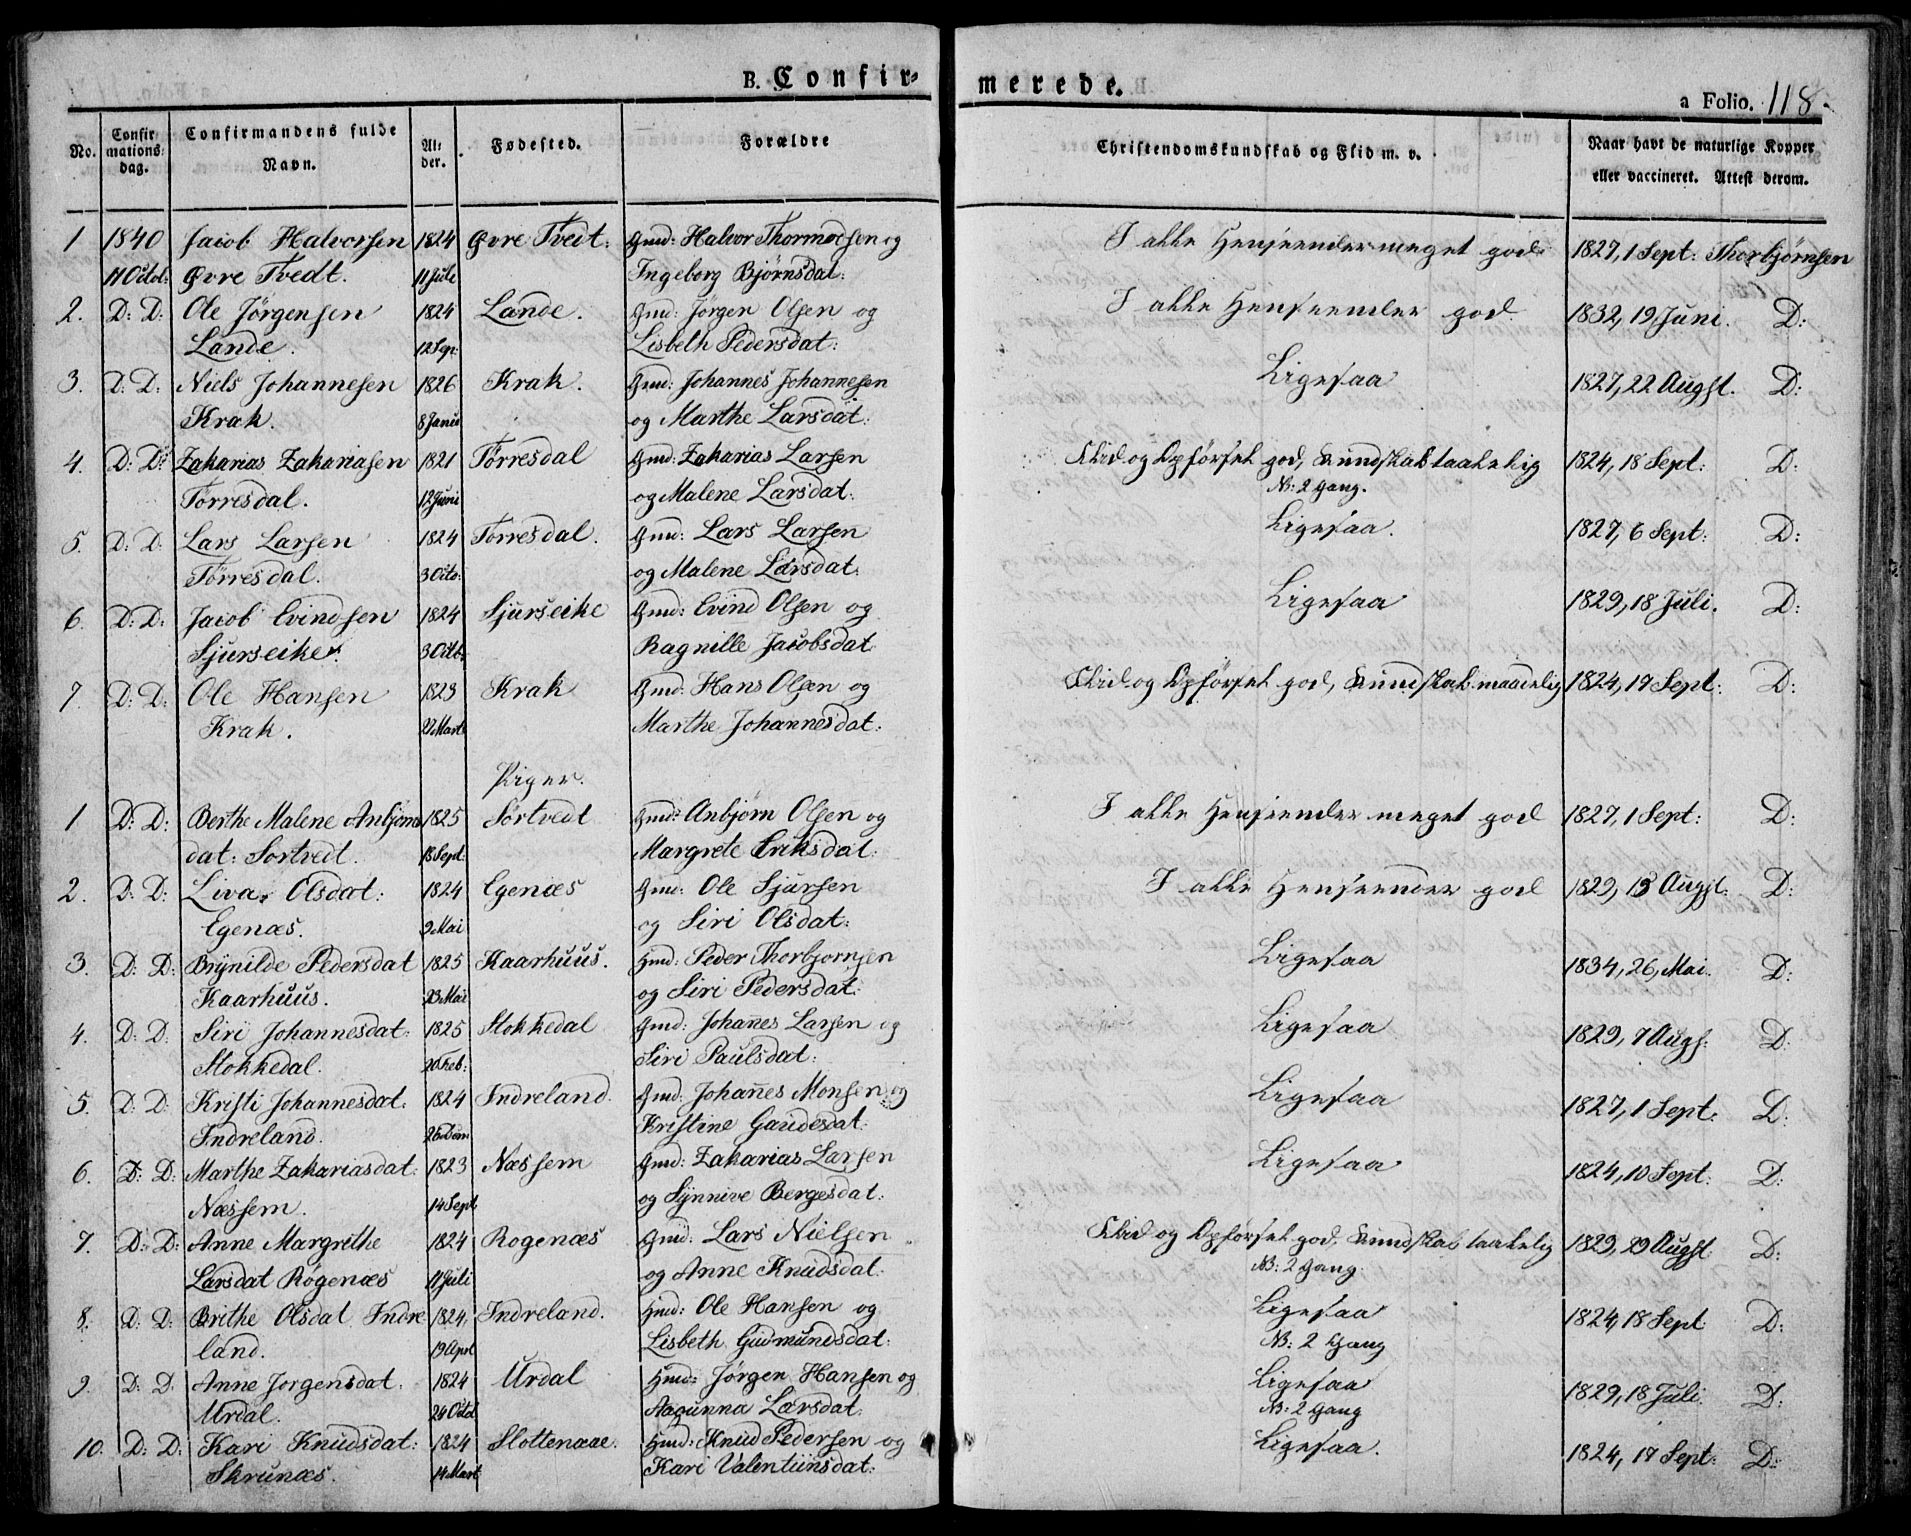 B. Confir- merede.
a Folio. 118.
No. Confirmationsdag. Confirmandens fulde Navn. Alder. Fødested. Forældre Christendomskundskab og Flid m. v. Naar havt de naturlige Kopper eller vaccineret. Attest derom.
1 1840 Jacob Halvorsen 1824 Øvre Tvedt: Gmd: Halvor Thormodsen og I alle Henseender meget god 1827, 1 Sept: Thorbjørnsen
11 Octob: Øvre Tvedt. 11 Juli Ingeborg Bjørnsdat:
2. D: D: Ole Jørgensen 1824 Lande. Gmd: Jørgen Olsen og I alle Henseender god 1832, 19 Juni. D:
Lande. 12 Sep: Lisbeth Pedersdat:
3. D: D: Niels Johannesen 1826 Krak. Gmd: Johannes Johannesen Ligesaa 1827, 22 Augst. D:
Krak. 8 Janu og Marthe Larsdat:
4. D: D: Zakarias Zakariasen 1821 Tørresdal Gmd: Zakarias Larsen Flid og Opførsel god, Kundskab taalelig 1824, 18 Sept: D:
Torresdal. 12 Juni og Malene Larsdat: NB: 2 Gang.
5. D: D: Lars Larsen 1824 Torresdal. Gmd: Lars Larsen Ligesaa. 1827, 6 Sept: D:
Tørresdal. 3 Octo: og Malene Larsdat:
6. D: D: Jacob Evindsen 1824 Sjurseike Gmd: Evind Olsen og Ligesaa 1829, 18 Juli. D:
Sjurseike. 3 Octb: Ragnille Jacobsdat
7. D: D: Ole Hansen 1823 Krak Gmd: Hans Olsen og Flid og Opførsel god, Kundskab maadelig 1824, 17 Sept: D:
Krak. Mart: Marthe Johannesdat:
Piger.
1 D: D: Berthe Malene Anbjørns 1825 Sørtvedt Gmd: Anbjørn Olsen og I alle Henseender meget god 1827, 1 Sept: D:
dat: Sortvedt. 18 Sept: Margrete Eriksdat:
2. D: D: Liva Olsdat: 1824 Egenæs Gmd: Ole Sjursen I alle Henseender god 1829, 13 Augst: D:
Egenæs. 9 Mai og Siri Olsdat:
3. D: D: Brynilde Pedersdat 1825 Kaarhuus. Hmd: Peder Thorbjornsen Ligesaa 1834, 26, Mai. D:
Kaarhuus. 23 Mai og Siri Pedersdat:
4. D: D: Siri Johannesdat: 1825 Stokkedal Gmd: Johañes Larsen og Ligesaa 1829, 7 Augs: D:
Stokkedal. 20 Feb: Siri Paulsdat:
5. D: D: Kristi Johannesdat: 1824 Indreland. Gmd: Johañes Monsen og Ligesaa 1827, 1 Sept: D:
Indreland. Kristine Gaudesdat:
6. D: D: Marthe Zakariasdat: 1823 Næssem Gmd: Zakarias Larsen Ligesaa 1824, 10 Sept: D:
Næssem. 14 Sept og Synnive Bergesdat:
7. D: D: Anne Margrethe 1824 Rogenæs Gmd: Lars Nielsen Flid og Opførsel god, Kundskab taalelig 1829, 29 Augst D:
Larsdat Røgenæs 11 Juli og Anne Knudsdat: NB: 2 Gang.
8. D: D: Brithe Olsdat Indre 1824, Indreland. Hmd: Ole Hansen og Ligesaa 1824, 18 Sept D:
land. 19 Apl Lisbeth Gudmundsdat: NB: 2 Gang
9. D: D. Anne Jorgensdat. 1824 Urdal Hmd: Jørgen Hansen og Ligesaa 1829, 18 Juli. D:
Urdal. 24 Octd Aagunna Larsdat: NB: 2 Gang
10. D: D: Kari Knudsdat: 1824 Slottenaae. Hmd: Knud Pedersen og Ligesaa. 1824, 17 Sept: D:
Skrunæs. 14 Mart Kari Valentinsdat: